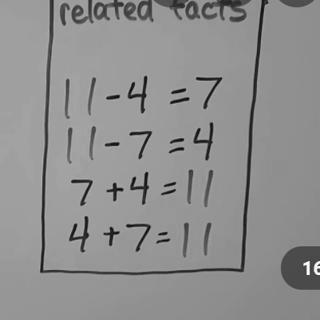 related facts
11-4=7
11-7=4
7+4=11
4+7=11
16